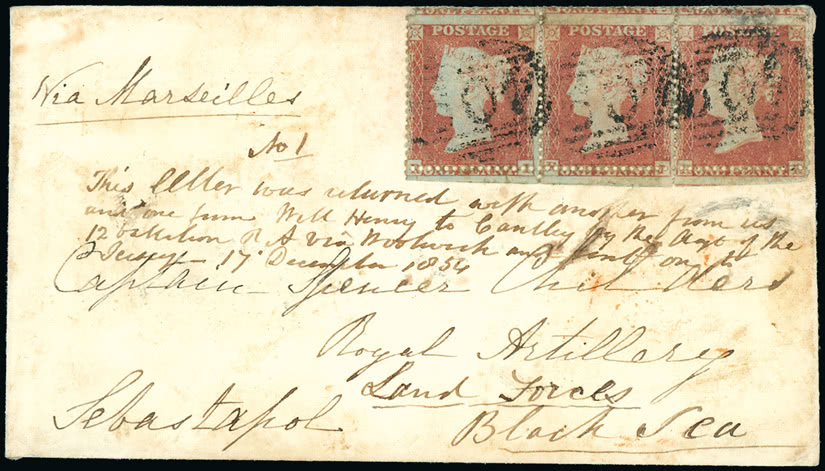 POSTAGE POSTAGE POSTAGE
ONE PENNY ONE PENNY ONE PENNY
Via Marseilles
No 1
This letter was returned with another from us
and one from Will Henry to Cantley by the Adjt of the
12 battalion R A via Woolwich and sent on to
Jersey - 17 December 1854
Captain Spencer Childers
Royal Artillery
Land Forces
Sebastapol Black Sea